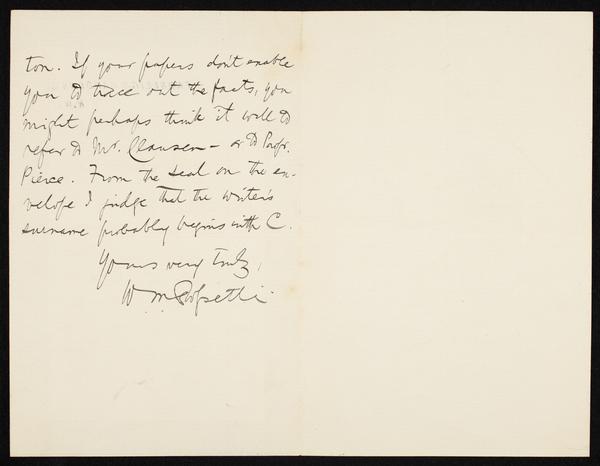 ton. If your papers don't enable
you to trace out the facts, you
might perhaps think it well to
refer to Mr. Clausen – or to Profr.
Pierce. From the seal on the en-
velope I judge that the writer's
surname probably begins with C.
Yours very truly,
W M Rossetti